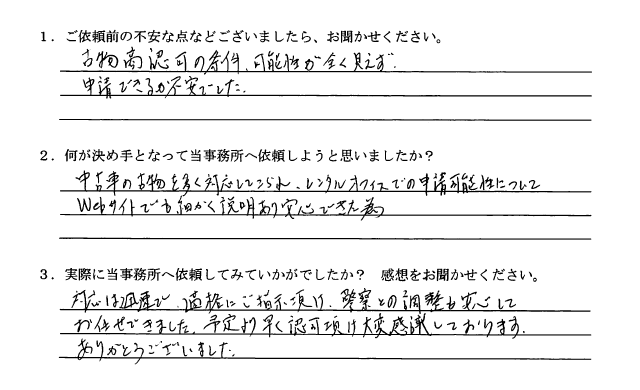 1．ご依頼前の不安な点などございましたら、お聞かせください。
古物商認可の条件、可能性が全く見えず、
申請できるか不安でした。
2．何が決め手となって当事務所へ依頼しようと思いましたか？
中古車の古物を多く対応してこられ、レンタルオフィスでの申請可能性について
Webサイトでも細かく説明あり安心できた為
3．実際に当事務所へ依頼してみていかがでしたか？　感想をお聞かせください。
対応は迅速で、適格にご指示頂け、警察との調整も安心して
お任せできました。予定より早く認可頂け大変感謝しております。
ありがとうございました。